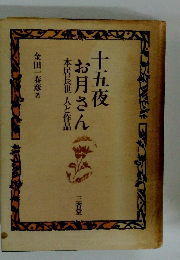 十五夜
お月さん
本居長世 人と作品
金田一春彦著
三省堂